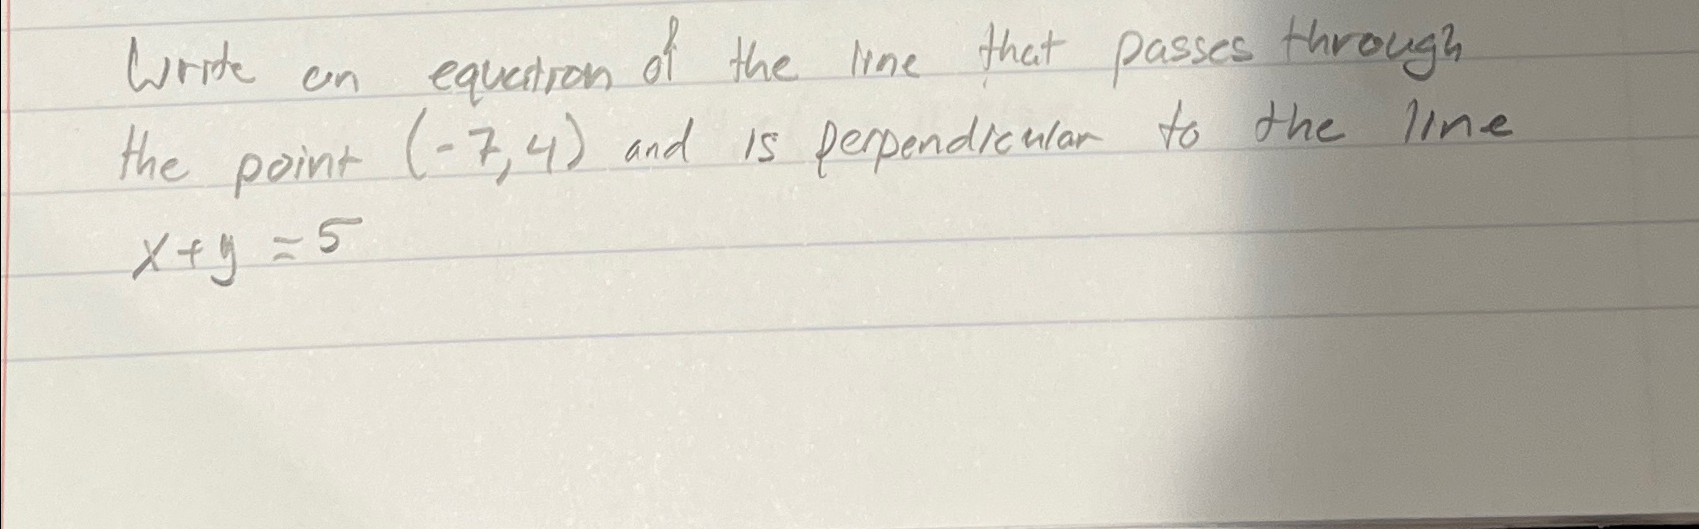 Write an equation of the line that passes through
the point (-7,4) and is perpendicular to the line
x+y=5